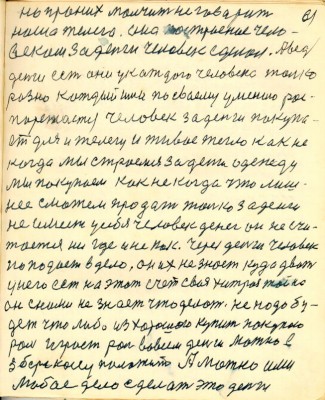 61
но про них молчит не говарит
наша телего. она построение чело-
веком за денги человек сделол. А вед
денги ест они у каждого человека толко
разно каждый ими по своему умению рос-
поряжаетс человек за денги покупа-
ет для и телегу и живое тело как не
когда мы строемся за денги одежду
мы покупаем как не когда что лиш-
нее сможем продат толко за денги
не имеет у себя человек денег он не счи-
таетса ни где и не как. Через денги человек
попадает в дело, он их не знает куда деват
у него ест на этот счет своя хитрая
он с ними не знает что делат. не подобу-
дет что либо из хорошого купит
рол играет рол вовсем денги можно в
зберкасу положит. А можно ими
любое дело сделат это денги